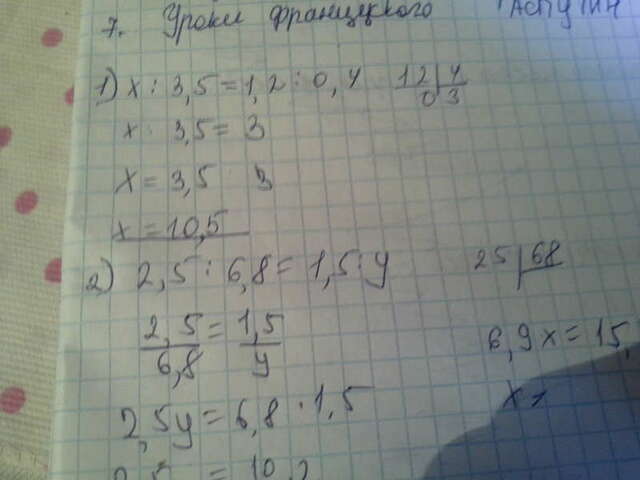 7. Уроки французского
1) x : 3,5 = 1,2 : 0,4
12 | 4
0 3
x : 3,5 = 3
x = 3,5 3
x = 10,5
2) 2,5 : 6,8 = 1,5 : y
25 | 68
2,5/6,8 = 1,5/y
6,9x = 15,
x =
2,5y = 6,8 · 1,5
= 10,2